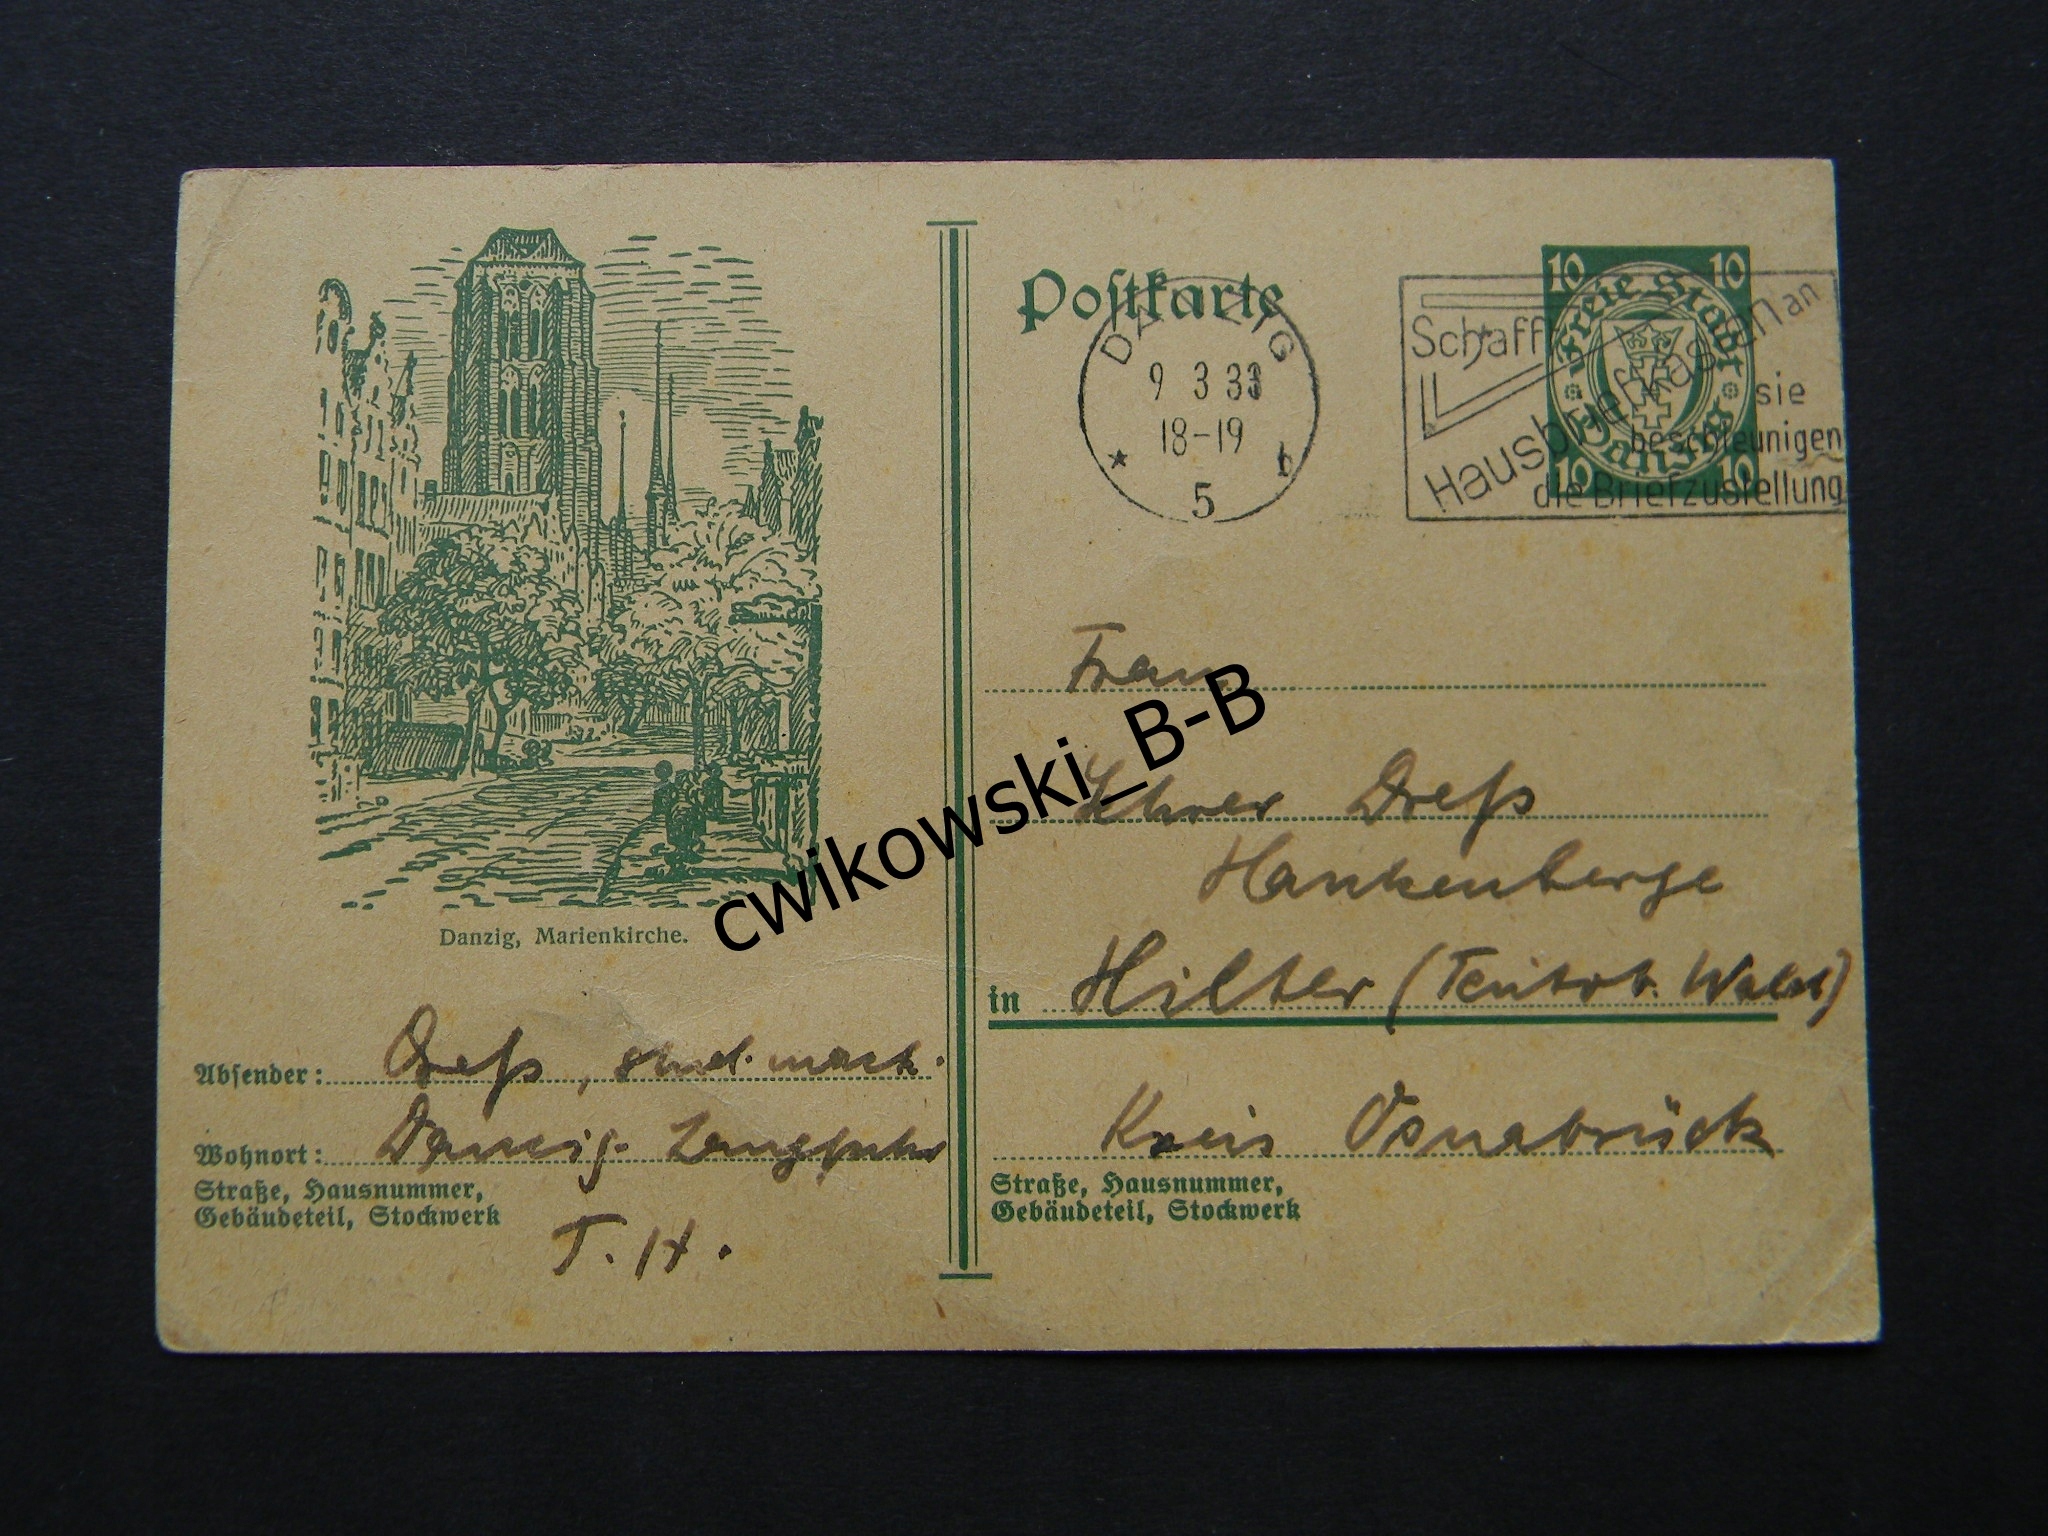 Postkarte
DANZIG
9 3 33
18-19
* 5 b
Schafft
Hausbriefkasten an
sie
beschleunigen
die Briefzustellung
10 10
Freie Stadt
Danzig
10 10
Frau
Lehrer Dreß
Hankenberge
in Hilter (Teutob. Wald)
Kreis Osnabrück
Straße, Hausnummer,
Gebäudeteil, Stockwerk
Danzig, Marienkirche.
Absender: Dreß, stud. mach.
Wohnort: Danzig-Langfuhr
Straße, Hausnummer,
Gebäudeteil, Stockwerk
T. H.
cwikowski_B-B